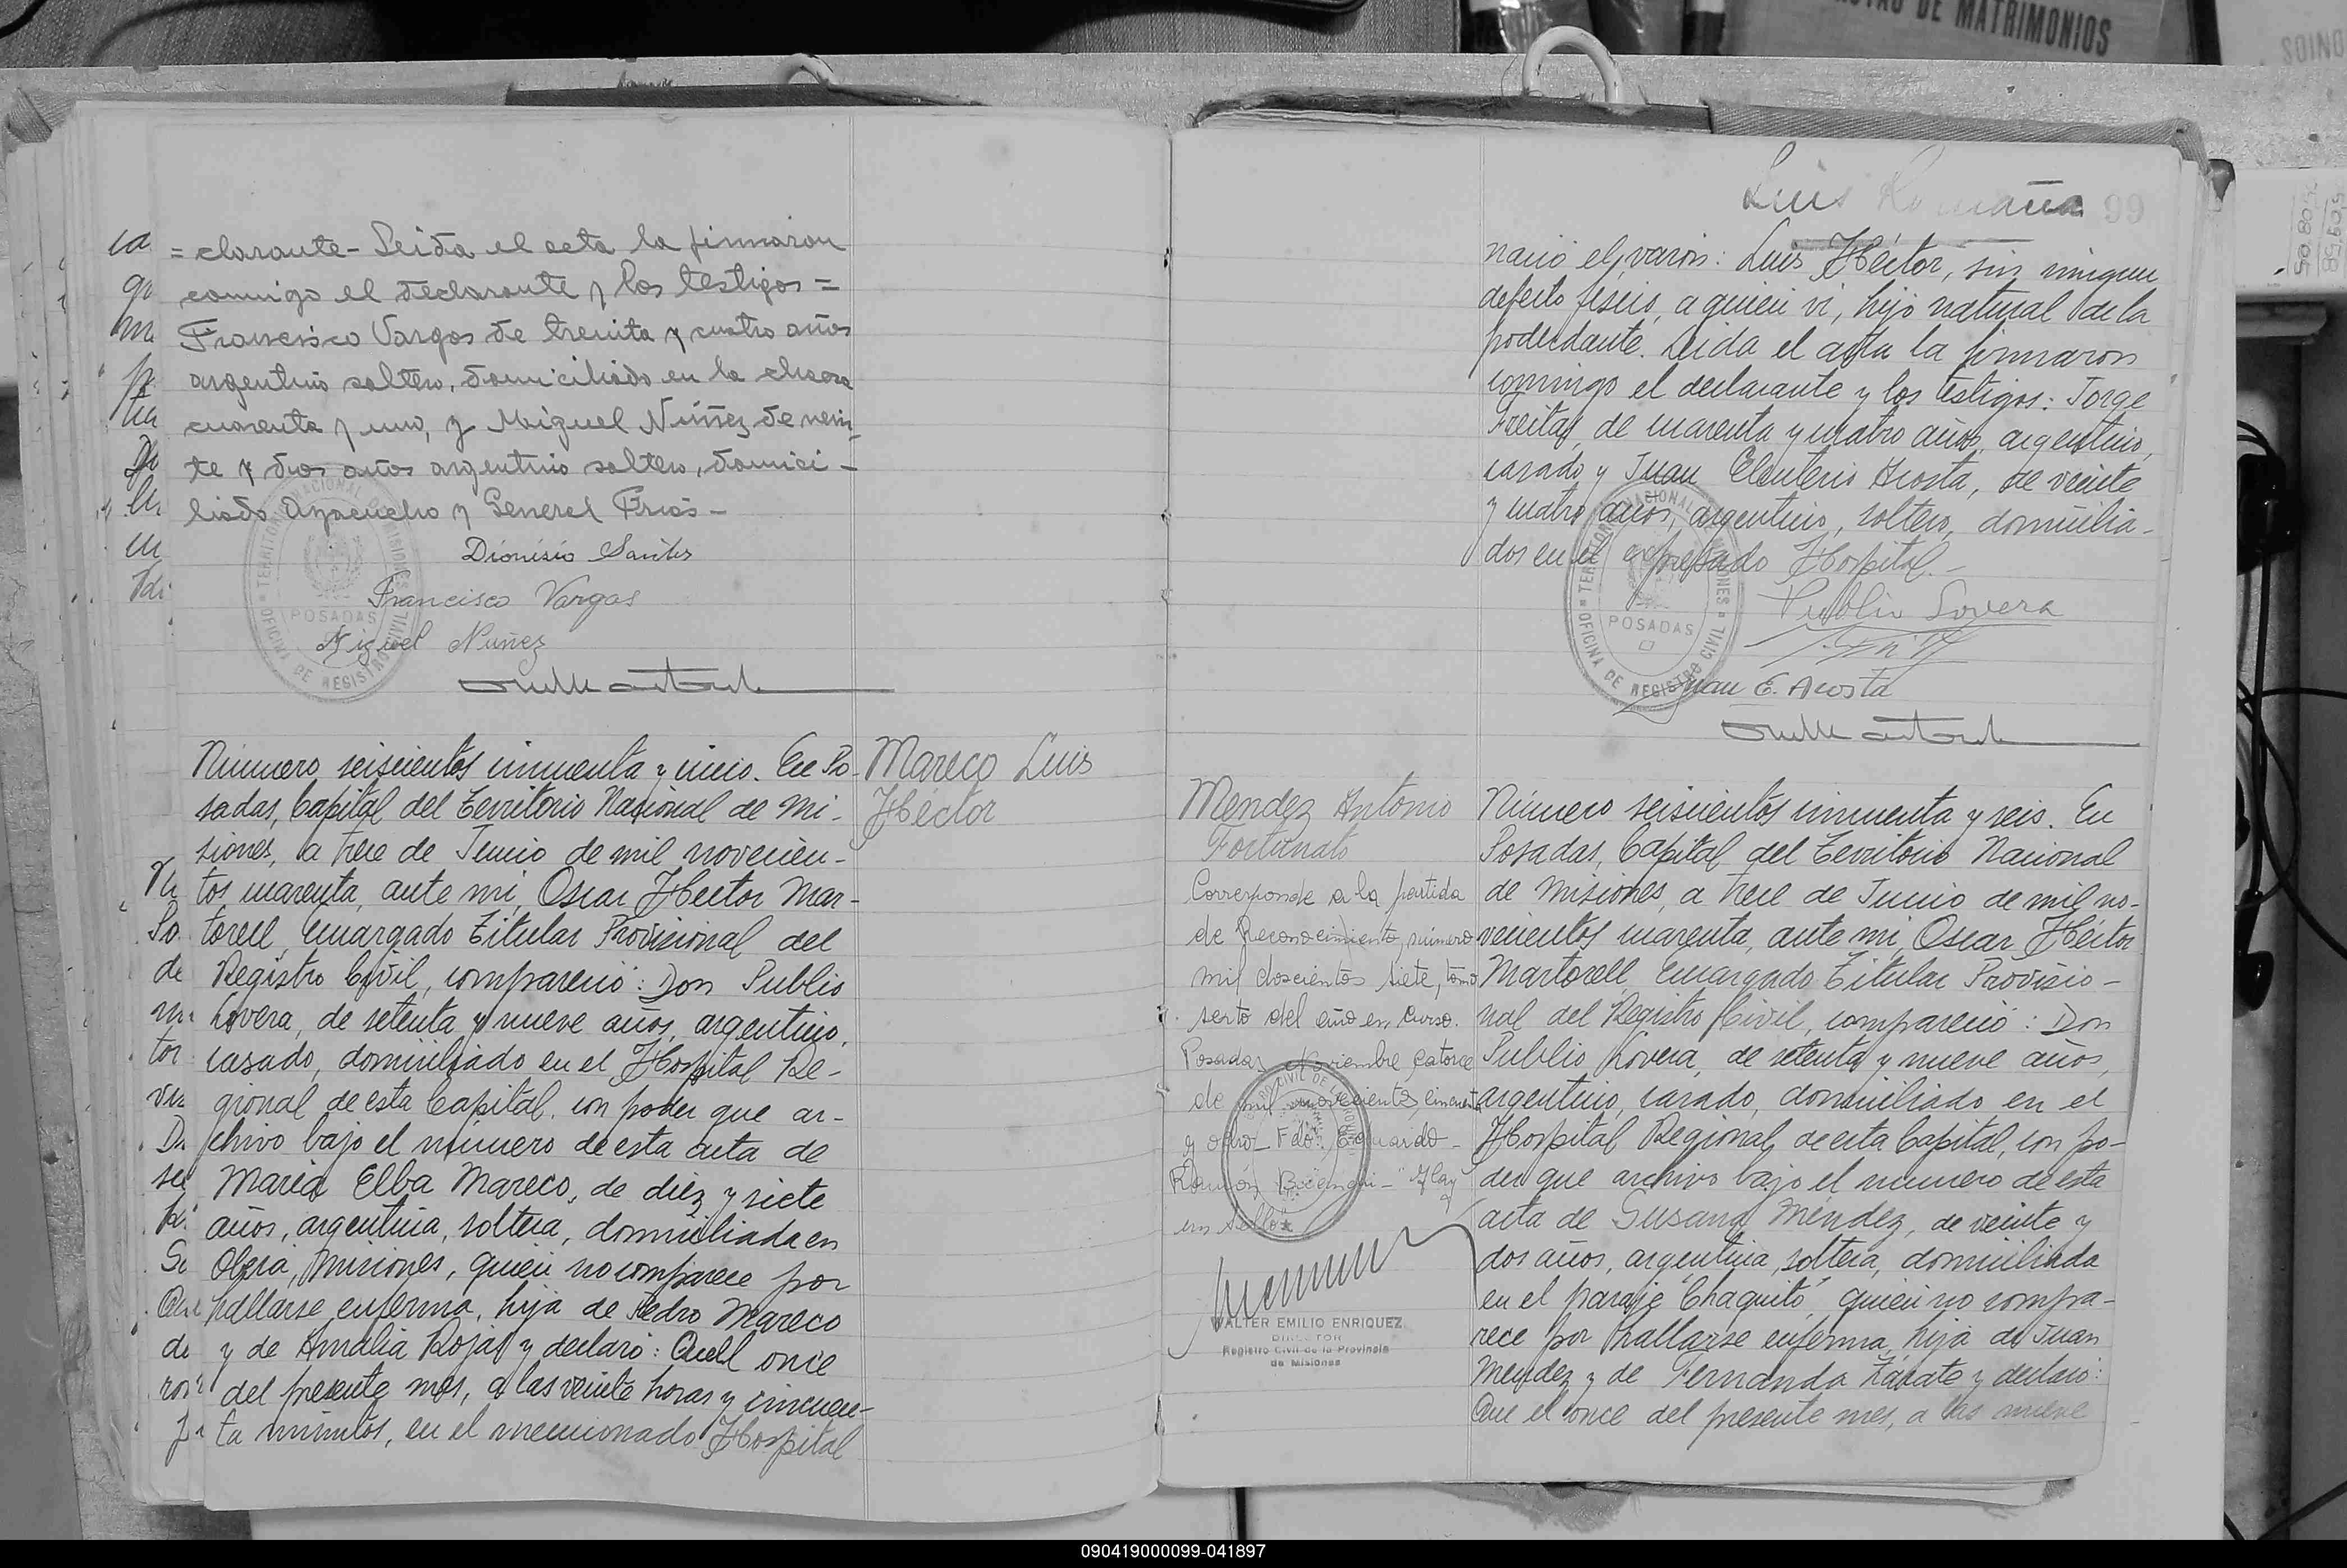 DE MATRIMONIOS
= clarante - Leida el acta la firmaron
conmigo el declarante y los testigos =
Francisco Vargas de treinta y cuatro años
argentino soltero, domiciliado en la chacra
cuarenta y uno, y Miguel Núñez de vein_
te y dos años argentino soltero, domici -
liado Ayacucho y General Frias -
Dionisio Santos
Francisco Vargas
Miguel Nuñez
TERRITORIO NACIONAL DE MISIONES
POSADAS
OFICINA DE REGISTRO CIVIL
Mareco Luis
Héctor
Número seiscientos cincuenta y cinco. En Po-
sadas, Capital del Territorio Nacional de Mi-
siones, a trece de Junio de mil novecien-
tos cuarenta, ante mi, Oscar Héctor Mar-
torell, Encargado Titular Provisional del
Registro Civil, compareció: Don Publio
Lovera, de setenta y nueve años, argentino,
casado, domiciliado en el Hospital Re-
gional de esta Capital, con poder que ar-
chivo bajo el número de esta acta de
María Elba Mareco, de diez y siete
años, argentina, soltera, domiciliada en
Oberá, Misiones, quien no comparece por
hallarse enferma, hija de Pedro Mareco
y de Amalia Rojas y declaró: Que el once
del presente mes, a las veinte horas y cincuen-
ta minutos, en el mencionado Hospital
Luis Romaña 99
nació el varón: Luis Héctor, sin ningun
defecto físico, a quien vi, hijo natural de la
poderdante. Leida el acta la firmaron
conmigo el declarante y los testigos: Jorge
Freitas, de cuarenta y cuatro años, argentino,
casado y Juan Eleuterio Acosta, de veinte
y cuatro años, argentino, soltero, domicilia-
dos en el expresado Hospital.-
Publio Lovera
Juan E. Acosta
TERRITORIO NACIONAL DE MISIONES
POSADAS
OFICINA DE REGISTRO CIVIL
Mendez Antonio
Fortunato
Corresponde a la partida
de Reconocimiento, número
mil doscientos siete, tomo
sexto del año en curso.
Posadas, Noviembre catorce
de mil novecientos cincuenta
y ocho - Fdo: Eduardo -
Ramón - "Hay
un sello"
WALTER EMILIO ENRIQUEZ
DIRECTOR
Registro Civil de la Provincia
de Misiones
Número seiscientos cincuenta y seis. En
Posadas, Capital del Territorio Nacional
de Misiones, a trece de Junio de mil no-
vecientos cuarenta, ante mi, Oscar Héctor
Martorell, Encargado Titular Provisio-
nal del Registro Civil, compareció: Don
Publio Lovera, de setenta y nueve años,
argentino, casado, domiciliado en el
Hospital Regional, de esta Capital, con po-
der que archivo bajo el número de esta
acta de Susana Méndez, de veinte y
dos años, argentina, soltera, domiciliada
en el paraje "Chaquito", quien no compa-
rece por hallarse enferma, hija de Juan
Mendez y de Fernanda Zárate y declaró:
Que el once del presente mes, a las nueve
090419000099-041897